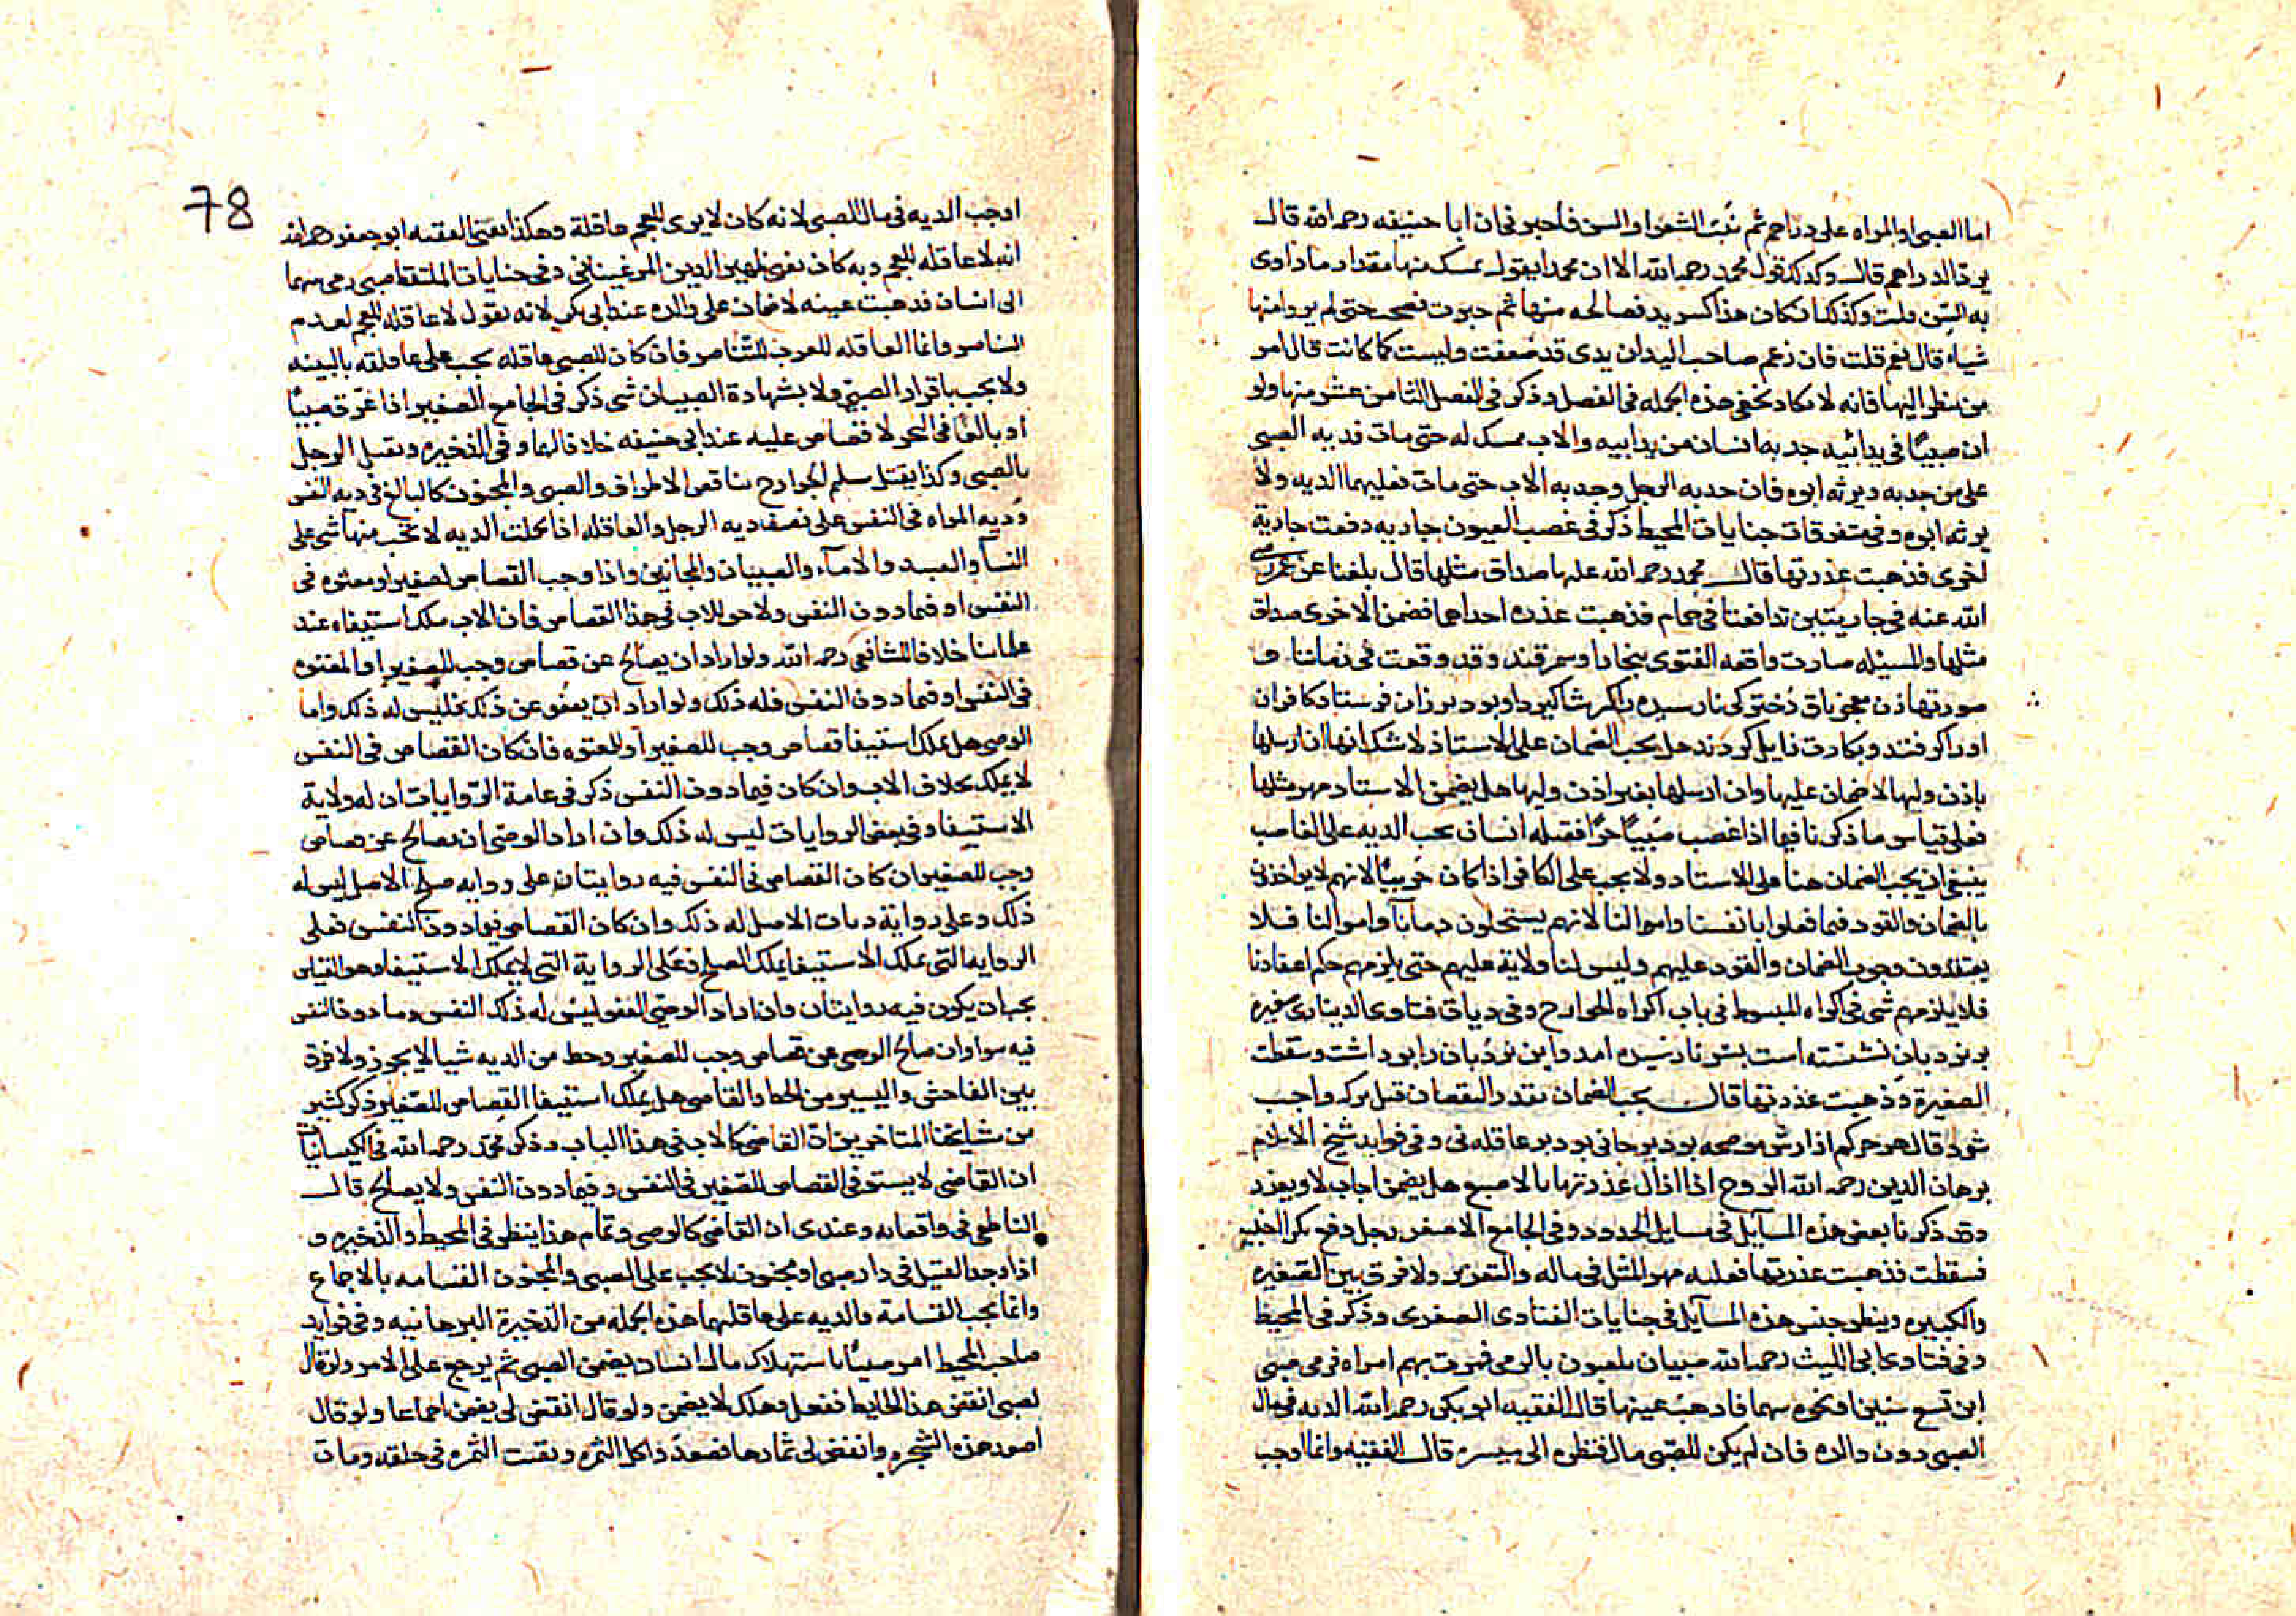 اما الصبى او المراه على دراهم ثم نبت الشعر او السن فاخبرنى ان ابا حنيفه رحمه الله قال
يرد الدراهم قال وكذلك قول محمد رحمه الله الا ان محمدا يقول يمسك منها مقدار ما داوى
به السن قلت وكذلك ان كان هذا كسر يد فصالحه منها ثم جبرت فصحت حتى لم ير منها
شياء قال نعم قلت فان زعم صاحب اليد ان يدى قد ضعفت وليست كما كانت قال امر
من ينظر اليها فانه لا يكاد تخفى هذه الجمله فى الفصل وذكر فى الفصل الثامن عشر منها ولو
ان صبيًا فى يد ابيه جدبه انسان من يد ابيه والاب يمسك له حتى مات فديه الصبى
على من جدبه ويرثه ابوه فان جدبه الرجل وجدبه الاب حتى مات فعليهما الديه ولا
يرثه ابوه وفى متفرقات جنايات المحيط ذكر فى غصب العيون جاريه دفعت جارية
اخرى فذهبت عذرتها قال محمد رحمه الله عليها صداق مثلها قال بلغنا عن عمر رضى
الله عنه فى جاريتين تدافعتا فى حمام فذهبت عذرة احداهما فضمن الاخرى صداق
مثلها والمسئله صارت واقعه الفتوى ببخارا وسمرقند وقد وقعت فى زماننا و
صورتها زن معجزباق دختركى نارسيده را كه شاكرد او بود بر زان فرستاد كافران
اورا كرفتند وبكارت زايل كردند هل يجب الضمان على الاستاذ لا شك انها ان ارسلها
باذن وليها لا ضمان عليها وان ارسلها بغير اذن وليها هل يضمن الاستاد مهر مثلها
فعلى قياس ما ذكرنا فيما اذا غصب صبيًا حرًا فقتله انسان يجب الديه على الغاصب
ينبغى ان يجب الضمان هنا على الاستاد ولا يجب على الكافر اذا كان حربيًا لانهم لا يواخذون
بالضمان والقود فيما فعلوا بانفسنا واموالنا لانهم يستحلون دماءنا واموالنا فلا
يعتقدون وجوب الضمان والقود عليهم وليس لنا ولاية عليهم حتى يلزمهم حكم اعتقادنا
فلا يلزمهم شى فى اكراه المبسوط فى باب اكراه الخوارج وفى ديات فتاوى الدينارى صغيره
بر نردبان نشسته است پسر نارسيده امد واين نردبان را برداشت وسقطت
الصغيرة وذهبت عذرتها قال يجب الضمان بقدر النقصان قيل بركه واجب
شود قال هر چه كم از ارش موضحه بود بر جانى بود بر عاقله نى وفى فوايد شيخ الاسلام
برهان الدين رحمه الله الزوج اذا ازال عذرتها بالاصبع هل يضمن اجاب لا ويعزر
وقد ذكرنا بعض هذه المسآيل فى مسايل الحدود وفى الجامع الاصغر رجل دفع بكر اجنبيه
فسقطت فذهبت عذرتها فعليه مهر المثل فى ماله والتعزير ولا فرق بين الصغيره
والكبيره وينظر جنس هذه المسآيل فى جنايات الفتاوى الصغرى وذكر فى المحيط
وفى فتاوى ابى الليث رحمه الله صبيان يلعبون بالرمى فمرت بهم امراه فرمى صبى
ابن تسع سنين او نحوه سهما فاذهب عينها قال الفقيه ابو بكر رحمه الله الديه فى مال
الصبى دون والده فان لم يكن للصبى مال فنظره الى ميسره قال الفقيه وانما اوجب
78
اوجب الديه فى مال الصبى لانه كان لا يرى للعجم عاقلة وهكذا يفتى الفقيه ابو جعفر رحمه الله
انه لا عاقله للعجم وبه كان يفتى ظهير الدين المرغينانى وفى جنايات الملتقط صبى رمى سهما
الى انسان فذهبت عينه لا ضمان على والده عند ابى بكر لانه يقول لا عاقله للعجم لعدم
التناصر وانما العاقله للعرب للتناصر فان كان للصبى عاقله يجب على عاقلته بالبينه
ولا يجب باقرار الصبى ولا بشهادة الصبيان شى ذكر فى الجامع الصغير اذا غرق صبيًا
او بالغًا فى البحر لا قصاص عليه عند ابى حنيفه خلافا لهما وفى الذخيره ويقتل الرجل
بالصبى وكذا يقتل سليم الجوارح بناقص الاطراف والصبى والمجنون كالبالغ فى ديه النفس
وديه المراه فى النفس على نصف ديه الرجل والعاقله اذا تحملت الديه لا تجب منها شى على
النسآ والعبيد والامآء والصبيان والمجانين واذا وجب القصاص لصغير او معتوه فى
النفس او فيما دون النفس ولا حق للاب فى هذا القصاص فان الاب يملك استيفاه عند
علمائنا خلافا للشافعى رحمه الله ولو اراد ان يصالح عن قصاص وجب للصغير او المعتوه
فى النفس او فيما دون النفس فله ذلك ولو اراد ان يعفو عن ذلك فليس له ذلك واما
الوصى هل يملك استيفا قصاص وجب للصغير او للمعتوه فان كان القصاص فى النفس
لا يملك بخلاف الاب وان كان فيما دون النفس ذكر فى عامة الروايات ان له ولاية
الاستيفا وفى بعض الروايات ليس له ذلك وان اراد الوصى ان يصالح عن قصاص
وجب للصغير ان كان القصاص فى النفس فيه روايتان على روايه صلح الاصل ليس له
ذلك وعلى رواية ديات الاصل له ذلك وان كان القصاص فيما دون النفس فعلى
الروايه التى يملك الاستيفا يملك الصلح وعلى الرواية التى لا يملك الاستيفا وهو القياس
يجب ان يكون فيه روايتان وان اراد الوصى العفو ليس له ذلك النفس وما دون النفس
فيه سوا وان صالح الوصى عن قصاص وجب للصغير وحط من الديه شيا لا يجوز ولا فرق
بين الفاحش واليسير من الحط والقاضى هل يملك استيفا القصاص للصغير ذكر كثير
من مشايخنا المتاخرين ان القاضى كالاب فى هذا الباب وذكر محمد رحمه الله فى الكيسانيات
ان القاضى لا يستوفى القصاص للصغير فى النفس وفيما دون النفس ولا يصالح قال
الناطفى فى واقعاته وعندى ان القاضى كالوصى وتمام هذا ينظر فى المحيط والذخيره و
اذا وجد القتيل فى دار صبى او مجنون لا يجب على الصبى والمجنون القسامه بالاجماع
وانما يجب القسامة والديه على عاقلتهما هذه الجمله من الذخيرة البرهانيه وفى فوايد
صاحب المحيط امر صبيًا باستهلاك مال انسان يضمن الصبى ثم يرجع على الامر ولو قال
لصبى انقض هذا الحايط ففعل وهلك لا يضمن ولو قال انقض لى يضمن اجماعا ولو قال
اصعد هذه الشجره وانفض لى ثمارها فصعد واكل الثمره وبقيت الثمره فى حلقه ومات